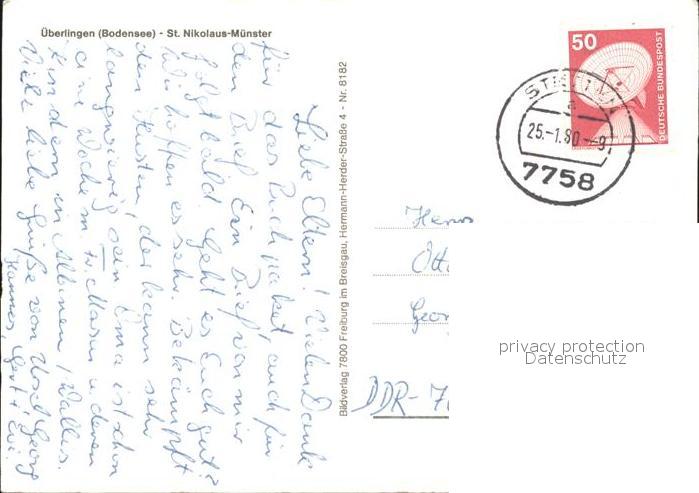 Überlingen (Bodensee) - St. Nikolaus-Münster
Liebe Eltern! Vielen Dank
für das Buchpaket, auch für
den Brief. Ein Brief von mir
folgt bald. Geht es Euch gut?
Wir hoffen es sehr. Bekämpft
den Husten, der kann sehr
langwierig sein. Oma ist schon
eine Woche m. Fr. u. deren
Kindern in Albinen / Wallis.
Viele liebe Grüße von Georg
Hannes, Gert + Evi.
Bildverlag 7800 Freiburg im Breisgau, Hermann-Herder-Straße 4 - Nr. 8182
50
DEUTSCHE BUNDESPOST
25.-1.80-9
7758
Herrn
Otto
Geor
DDR-70
privacy protection
Datenschutz